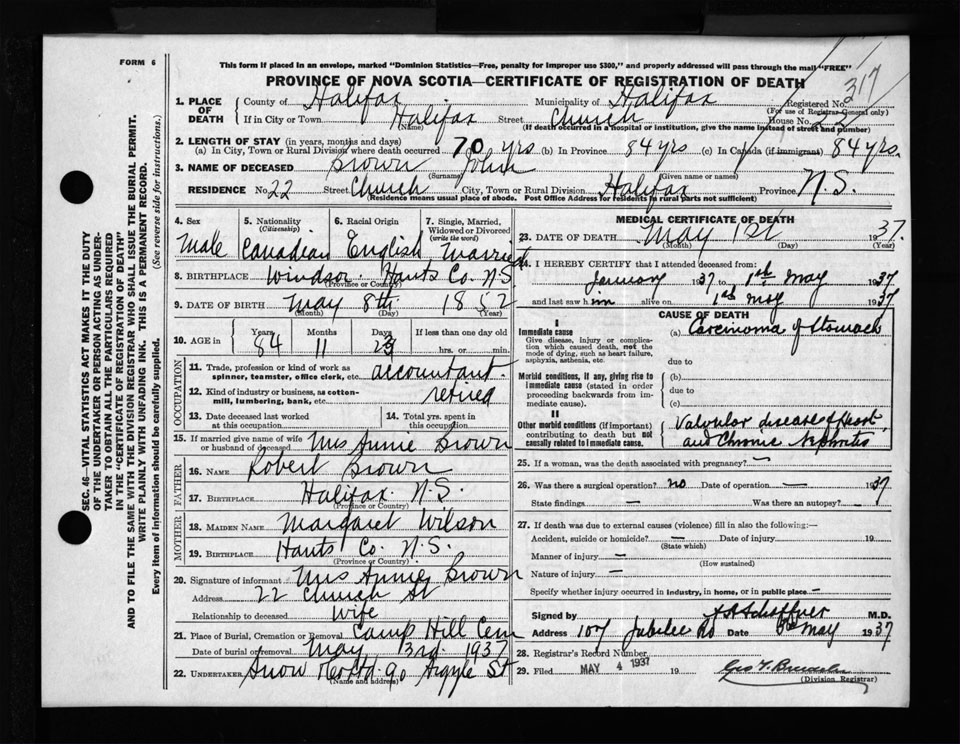 FORM 6
This form if placed in an envelope, marked "Dominion Statistics—Free, penalty for improper use $300," and properly addressed will pass through the mail "FREE"
PROVINCE OF NOVA SCOTIA—CERTIFICATE OF REGISTRATION OF DEATH
317
1. PLACE OF DEATH County of Halifax Municipality of Halifax Registered No.
(For use of Registrar-General only)
If in City or Town Halifax Street Church House No. 22
(Name) (If death occurred in a hospital or institution, give the name instead of street and number)
2. LENGTH OF STAY (in years, months and days)
(a) In City, Town or Rural Division where death occurred 70 yrs (b) In Province 84 yrs (c) In Canada (if immigrant) 84 yrs.
3. NAME OF DECEASED Brown John
(Surname) (Given name or names)
RESIDENCE No. 22 Street Church City, Town or Rural Division Halifax Province N.S.
(Residence means usual place of abode. Post Office Address for residents in rural parts not sufficient)
4. Sex 5. Nationality (Citizenship) 6. Racial Origin 7. Single, Married, Widowed or Divorced (write the word)
Male Canadian English Married
8. BIRTHPLACE Windsor Hants Co. N.S.
(Province or Country)
9. DATE OF BIRTH May 8th 1852
(Month) (Day)
10. AGE in Years Months Days If less than one day old
84 11 23 hrs. or min.
OCCUPATION
11. Trade, profession or kind of work as spinner, teamster, office clerk, etc. accountant.
12. Kind of industry or business, as cotton-mill, lumbering, bank, etc. retired
13. Date deceased last worked at this occupation 14. Total yrs. spent in this occupation
15. If married give name of wife or husband of deceased Mrs Annie Brown
FATHER
16. NAME Robert Brown
17. BIRTHPLACE Halifax. N.S.
(Province or Country)
MOTHER
18. MAIDEN NAME Margaret Wilson
19. BIRTHPLACE Hants Co. N.S.
(Province or Country)
20. Signature of informant Mrs Annie Brown
Address 22 Church St
Relationship to deceased Wife
21. Place of Burial, Cremation or Removal Camp Hill Cem
Date of burial or removal May 3rd 1937
22. UNDERTAKER Snow & Co Ltd 90 Argyle St
(Name and address)
MEDICAL CERTIFICATE OF DEATH
23. DATE OF DEATH May 1st 1937.
(Month) (Day) (Year)
24. I HEREBY CERTIFY that I attended deceased from:
January 1937 to 1st May 1937
and last saw him alive on 1st May 1937
CAUSE OF DEATH
I
Immediate cause (a) Carcinoma of Stomach
Give disease, injury or complication which caused death, not the mode of dying, such as heart failure, asphyxia, asthenia, etc.
due to
Morbid conditions, if any, giving rise to immediate cause (stated in order proceeding backwards from immediate cause). (b)
due to
(c)
II
Other morbid conditions (if important) contributing to death but not causally related to immediate cause. Valvular disease of Heart
and Chronic Nephritis
25. If a woman, was the death associated with pregnancy? —
26. Was there a surgical operation? no Date of operation — 1937
State findings — Was there an autopsy? —
27. If death was due to external causes (violence) fill in also the following:—
Accident, suicide or homicide? — Date of injury 19
(State which)
Manner of injury —
(How sustained)
Nature of injury —
Specify whether injury occurred in industry, in home, or in public place —
Signed by M.D.
Address 107 Jubilee Rd Date May 1937
28. Registrar's Record Number
29. Filed MAY 4 1937 19
(Division Registrar)
SEC. 46—VITAL STATISTICS MAKES IT THE DUTY
OF THE UNDERTAKER OR PERSON ACTING AS UNDER-
TAKER TO OBTAIN ALL THE PARTICULARS REQUIRED
IN THE "CERTIFICATE OF REGISTRATION OF DEATH"
AND TO FILE THE SAME WITH THE DIVISION REGISTRAR WHO SHALL ISSUE THE BURIAL PERMIT.
WRITE PLAINLY WITH UNFADING INK. THIS IS A PERMANENT RECORD.
Every item of information should be carefully supplied. (See reverse side for instructions.)